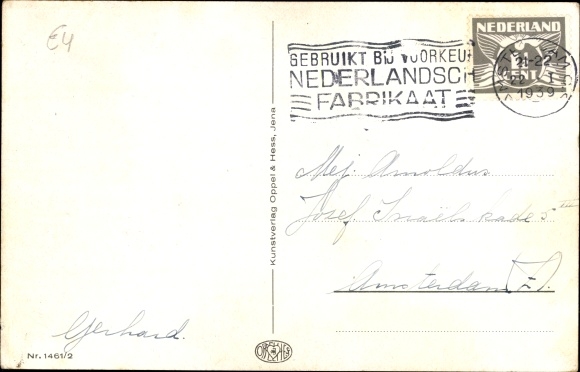 E4
GEBRUIKT BIJ VOORKEUR
NEDERLANDSCH
FABRIKAAT
NEDERLAND
CENT
21-22
1939
Kunstverlag Oppel & Hess, Jena
Mej. Arnoldus
Jozef Israëls kade 5
Amsterdam Z.
Gerhard.
Nr. 1461/2